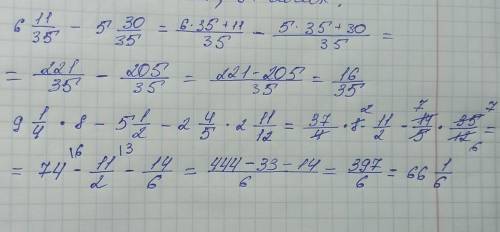 6 11/35 - 5 30/35 = 6·35+11/35 - 5·35+30/35 =
= 221/35 - 205/35 = 221-205/35 = 16/35
9 1/4 · 8 - 5 1/2 - 2 4/5 · 2 11/12 = 37/4 · 8 2 - 11/2 - 14 7/5 · 35 7/12 6 =
= 74 |6 - 11/2 |3 - 14/6 = 444-33-14/6 = 397/6 = 66 1/6